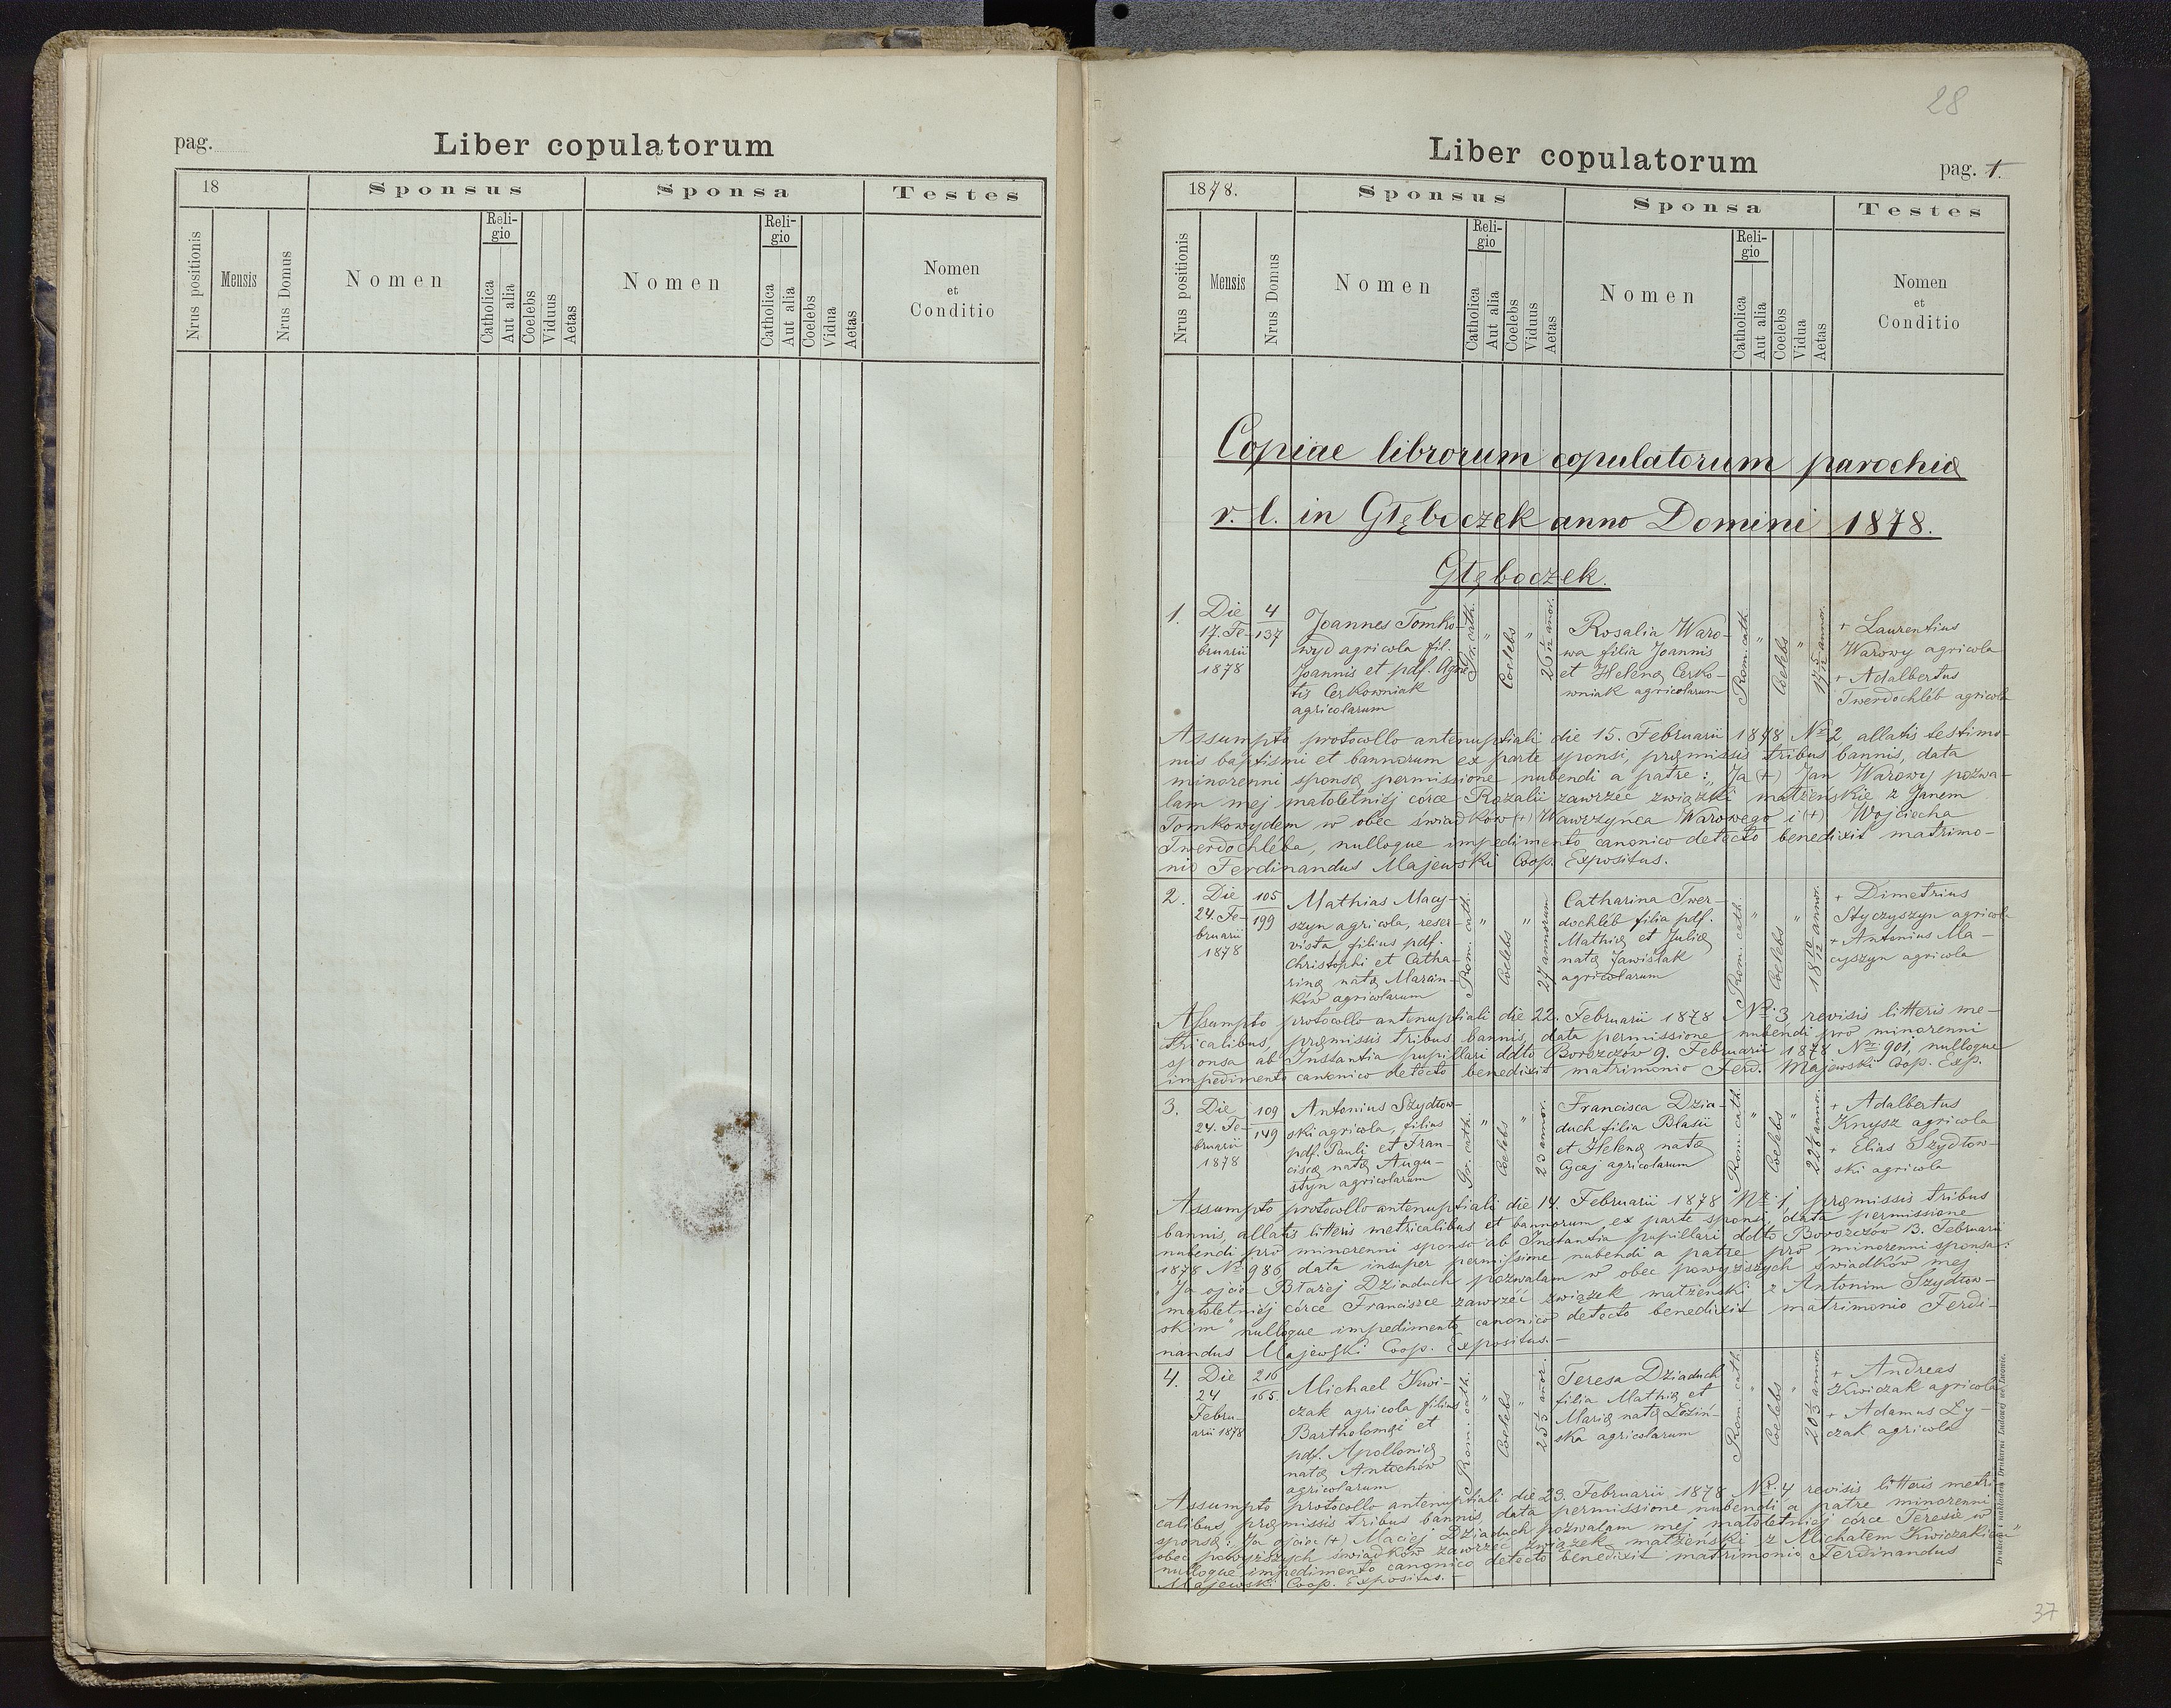 pag.
Liber copulatorum
18
Sponsus
Sponsa
Testes
Nrus positionis
Mensis
Nrus Domus
Nomen
Reli-
gio
Catholica
Aut alia
Coelebs
Viduus
Aetas
Nomen
Reli-
gio
Catholica
Aut alia
Coelebs
Vidua
Aetas
Nomen
et
Conditio
28
Liber copulatorum
pag. 1.
1878.
Sponsus
Sponsa
Testes
Nrus positionis
Mensis
Nrus Domus
Nomen
Reli-
gio
Catholica
Aut alia
Coelebs
Viduus
Aetas
Nomen
Reli-
gio
Catholica
Aut alia
Coelebs
Vidua
Aetas
Nomen
et
Conditio
Copiae librorum copulatorum parochię
r. l. in Głęboczek anno Domini 1878.
Głęboczek.
1.
Die
17. Fe-
bruarii
1878
4
137
Joannes Tomko-
wyd agricola fil.
Joannis et pdf. Agne-
tis Cerkowniak
agricolarum
Gr. cath.
"
Coelebs
"
26 1/12 anor.
Rosalia Waro-
wa filia Joannis
et Helenę Cerko-
wniak agricolarum
Rom. cath.
"
Coelebs
"
17 5/12 annor.
+ Laurentius
Warowy agricola
+ Adalbertus
Twerdochlib agricola
Assumpto protocollo antenuptiali die 15. Februarii 1878 Nr. 2 allatis testimo-
niis baptismi et bannorum ex parte sponsi, pręmissis tribus bannis, data
minorenni sponsę permissione nubendi a patre: „Ja (+) Jan Warowy pozwa-
lam mej małoletniéj córce Rozalii zawrzéć związki małżeńskie z Janem
Tomkowydem w obec świadków (+) Wawrzyńca Warowego i (+) Wojciecha
Twerdochléba, nulloque impedimento canonico detecto benedixit matrimo-
nio Ferdinandus Majewski Coop. Expositus.
2.
Die
24. Fe-
bruarii
1878
105
199
Mathias Macy-
szyn agricola, reser-
vista filius pdf.
Christophi et Catha-
rinę natę Marcin-
ków agricolarum
Rom. cath.
"
Coelebs
"
27 annorum
Catharina Twer-
dochléb filia pdf.
Mathię et Julię
natę Jawislak
agricolarum
Rom. cath.
"
Coelebs
"
18 10/12 annor.
+ Dimetrius
Styczyszyn agricola
+ Antonius Ma-
cyszyn agricola
Assumpto protocollo antenuptiali die 22. Februarii 1878 Nr. 3 revisis litteris me-
thicalibus, pręmissis tribus bannis, data permissione nubendi pro minorenni
sponsa ab Instantia pupillari ddto Borszczów 9. Februarii 1878 Nr. 901, nulloque
impedimento canonico detecto benedixit matrimonio Ferd. Majewski Coop. Exp.
3.
Die
24. Fe-
bruarii
1878
109
149
Antonius Szydłow-
ski agricola, filius
pdf. Pauli et Fran-
ciscę natę Augu-
styn agricolarum
Gr. cath.
"
Coelebs
"
23 annor.
Francisca Dzia-
duch filia Blasii
et Helenę natę
Cycaj agricolarum
Rom. cath.
"
Coelebs
"
22 1/6 annor.
+ Adalbertus
Knysz agricola
+ Elias Szydłow-
ski agricola
Assumpto protocollo antenuptiali die 14. Februarii 1878 Nr. 1 pręmissis tribus
bannis, allatis litteris metricalibus et bannorum ex parte sponsi, data permissione
nubendi pro minorenni sponso ab Instantia pupillari ddto Borszczów 13. Februarii
1878 Nr. 986 data insuper permissione nubendi a patre pro minorenni sponsa:
„Ja ojciec Błażej Dziaduch pozwalam w obec powyższych świadków mej
małoletniéj córce Franciszce zawrzéć związek małżeński z Antonim Szydłow-
skim" nulloque impedimento canonico detecto benedixit matrimonio Ferdi-
nandus Majewski Coop. Expositus.—
4.
Die
24
Febru-
arii 1878
216
165
Michael Kwi-
czak agricola filius
Bartholomęi et
pdf. Apollonię
natę Antochów
agricolarum
Rom. cath.
"
Coelebs
"
25 1/3 anor.
Teresa Dziaduch
filia Mathię et
Marię natę Loziń-
ska agricolarum
Rom. cath.
"
Coelebs
"
20 1/3 annor.
+ Andreas
Kwiczak agricola
+ Adamus Ły-
czak agricola
Assumpto protocollo antenuptiali die 23. Februarii 1878 Nr. 4 revisis litteris metri-
calibus pręmissis tribus bannis, data permissione nubendi a patre minorenni
sponsę: „Ja ojciec (+) Maciej Dziaduch pozwalam mej małoletniéj córce Teresie w
obec powyższych świadków zawrzéć związek małżeński z Michałem Kwiczakiem"
nulloque impedimento canonico detecto benedixit matrimonio Ferdinandus
Majewski Coop. Expositus.—
Drukiem i nakładem Drukarni Ludowej we Lwowie.
37